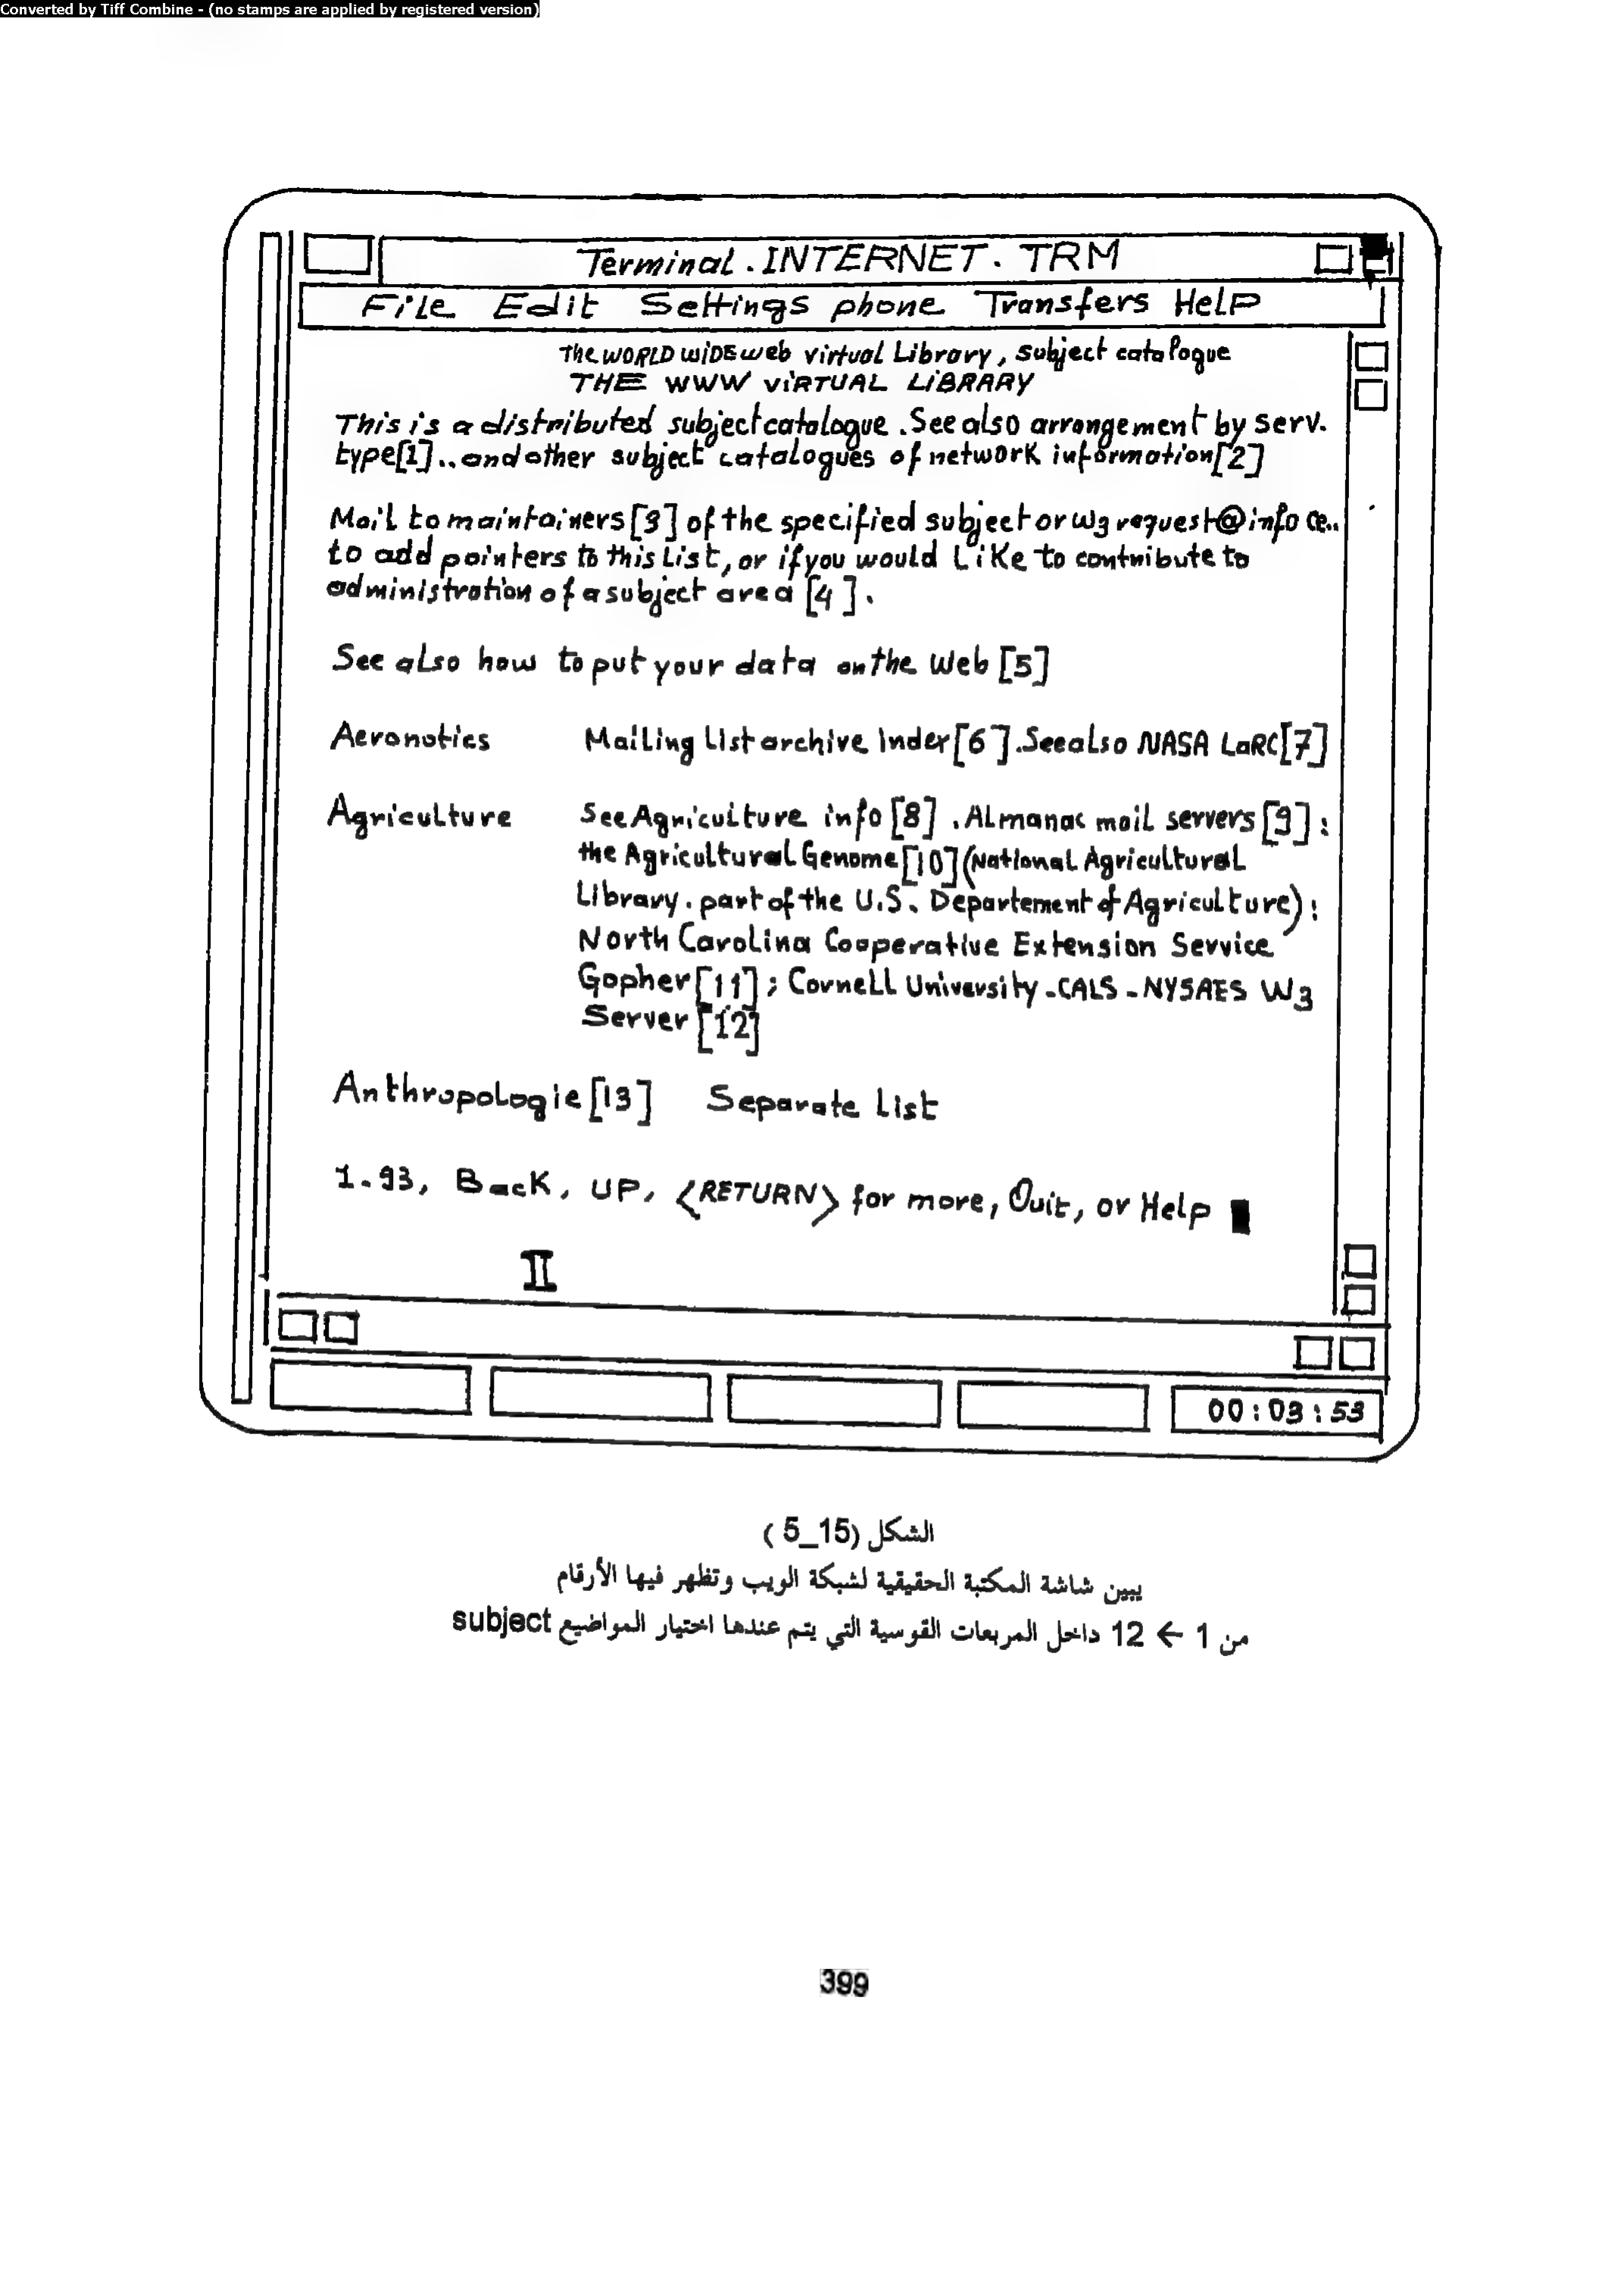 Converted by Tiff Combine - (no stamps are applied by registered version)
Terminal . INTERNET . TRM
File Edit Settings phone Transfers Help
The WORLD WIDE web virtual Library, subject catalogue
THE WWW VIRTUAL LIBRARY
This is a distributed subject catalogue . See also arrangement by serv.
type[1] .. and other subject catalogues of network information[2]
Mail to maintainers [3] of the specified subject or w3 request@info ce..
to add pointers to this List, or if you would Like to contribute to
administration of a subject area [4] .
See also how to put your data on the Web [5]
Aeronotics Mailing List archive Inder[6] . See also NASA LaRC[7]
Agriculture See Agriculture info [8] . Almanac mail servers [9] :
the Agricultural Genome[10] (National Agricultural
Library . part of the U.S. Departement of Agriculture) :
North Carolina Cooperative Extension Service
Gopher [11] ; Cornell University - CALS - NYSAES W3
Server [12]
Anthropologie[13] Separate List
1.93, Back, UP, <RETURN> for more, Quit, or Help
II
00:03:53
الشكل (15_5 )
يبين شاشة المكتبة الحقيقية لشبكة الويب وتظهر فيها الأرقام
من 1 ← 12 داخل المربعات القوسية التي يتم عندها اختيار المواضيع subject
399